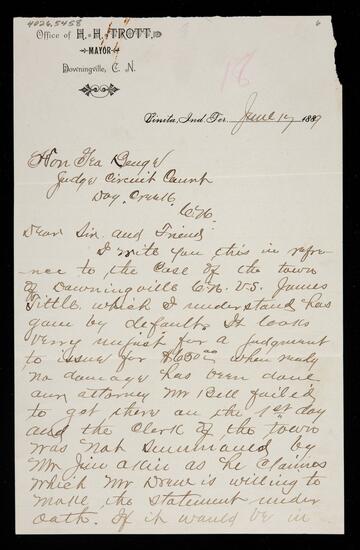 4026.5458
6
Office of H. H. TROTT,
MAYOR
Downingville, C. N.
18
Vinita, Ind. Ter. June 17 1889
Hon
Judge Circuit Court
C.N.
Dear Sir and Friend
I write you this in refre-
nce to the Case of the town
of Downingville C.N. vs. James
Tittle which I understand has
gone by default. It looks
verry unjust for a judgment
to issue for $650 00 when realy
no damage has been done
our attorney Mr Bell failed
to get there on the 1st day
and the Clerk of the town
was not Summoned by
Mr Jim akin as he claimes
which Mr Drew is willing to
make the statement under
oath. If it would be in